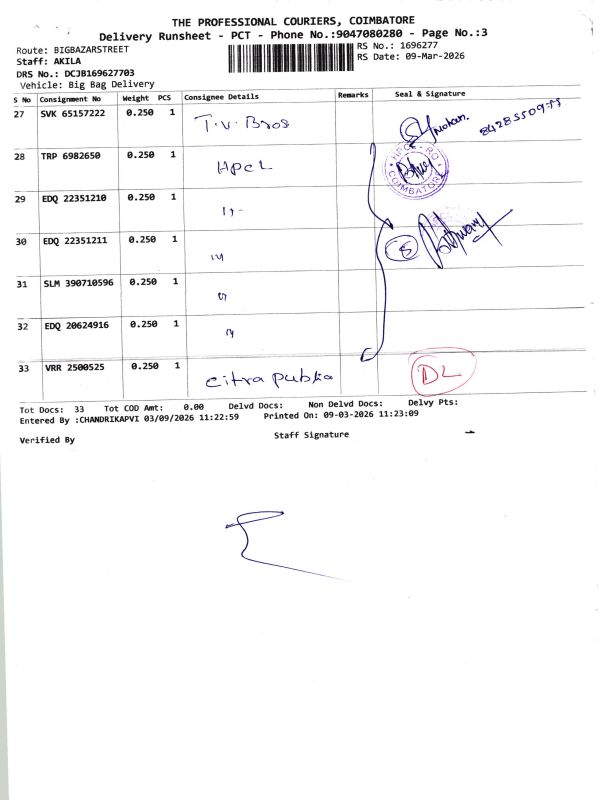 THE PROFESSIONAL COURIERS, COIMBATORE
Delivery Runsheet - PCT - Phone No.:9047080280 - Page No.:3
Route: BIGBAZARSTREET
RS No.: 1696277
Staff: AKILA
RS Date: 09-Mar-2026
DRS No.: DCJB169627703
Vehicle: Big Bag Delivery
S No Consignment No Weight PCS Consignee Details Remarks Seal & Signature
27 SVK 65157222 0.250 1 T.V. Bros
28 TRP 6982650 0.250 1 HPCL HPCL - RO COIMBATORE
29 EDQ 22351210 0.250 1 11-
30 EDQ 22351211 0.250 1 5
31 SLM 390710596 0.250 1
32 EDQ 20624916 0.250 1
33 VRR 2500525 0.250 1 Citra publia DL
Tot Docs: 33 Tot COD Amt: 0.00 Delvd Docs: Non Delvd Docs: Delvy Pts:
Entered By :CHANDRIKAPVI 03/09/2026 11:22:59 Printed On: 09-03-2026 11:23:09
Verified By Staff Signature